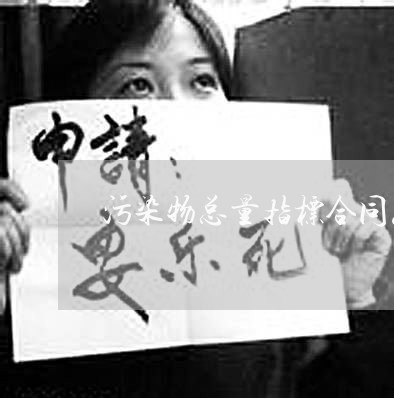 申請：
污染物总量指标合同
乐死